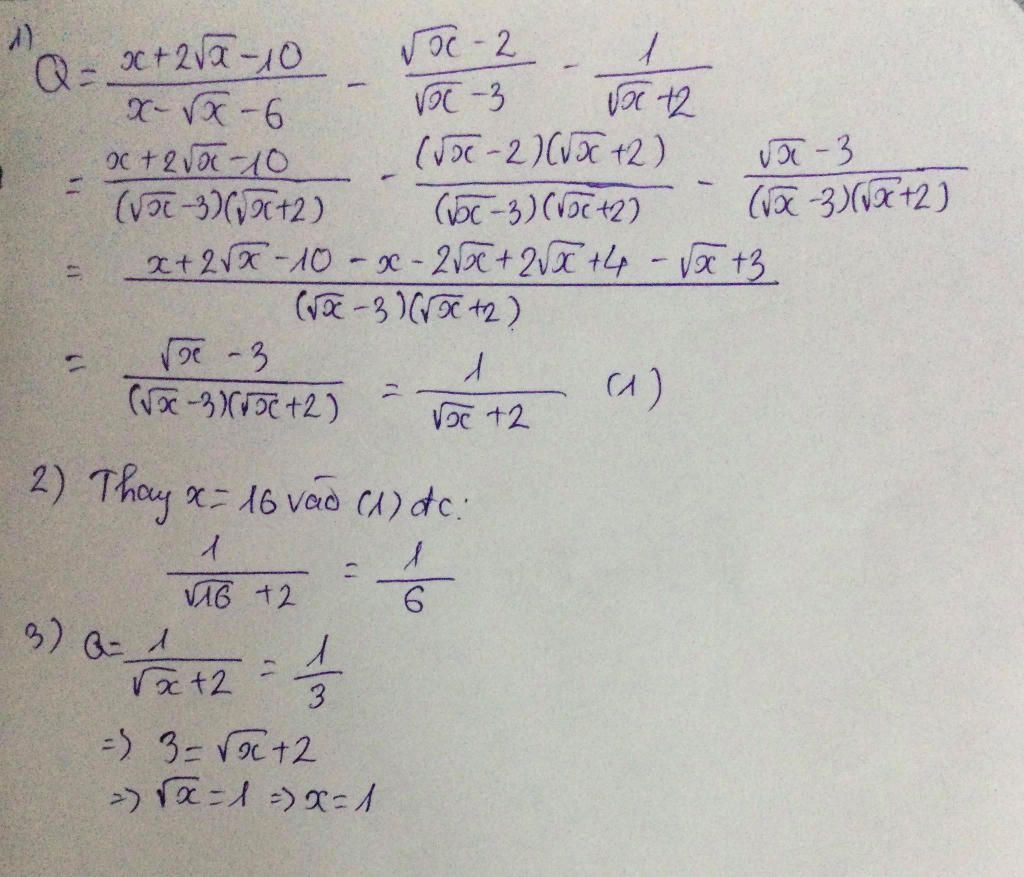 1) Q = (x + 2√x - 10)/(x - √x - 6) - (√x - 2)/(√x - 3) - 1/(√x + 2)
= (x + 2√x - 10)/((√x - 3)(√x + 2)) - ((√x - 2)(√x + 2))/((√x - 3)(√x + 2)) - (√x - 3)/((√x - 3)(√x + 2))
= (x + 2√x - 10 - x - 2√x + 2√x + 4 - √x + 3)/((√x - 3)(√x + 2))
= (√x - 3)/((√x - 3)(√x + 2)) = 1/(√x + 2) (1)
2) Thay x = 16 vào (1) đc:
1/(√16 + 2) = 1/6
3) Q = 1/(√x + 2) = 1/3
=> 3 = √x + 2
=> √x = 1 => x = 1